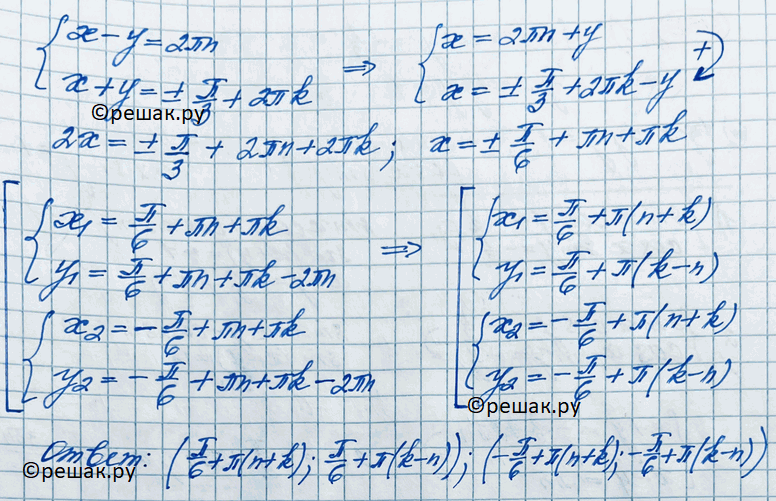 { x - y = 2πn
{ x + y = ± π/3 + 2πk
⇒
{ x = 2πn + y
{ x = ± π/3 + 2πk - y
+
©решак.ру
2x = ± π/3 + 2πn + 2πk; x = ± π/6 + πn + πk
[ { x₁ = π/6 + πn + πk
{ y₁ = π/6 + πn + πk - 2πn
{ x₂ = - π/6 + πn + πk
{ y₂ = - π/6 + πn + πk - 2πn
⇒
[ { x₁ = π/6 + π(n+k)
{ y₁ = π/6 + π(k-n)
{ x₂ = - π/6 + π(n+k)
{ y₂ = - π/6 + π(k-n)
©решак.ру
Ответ: (π/6 + π(n+k); π/6 + π(k-n)); (-π/6 + π(n+k); -π/6 + π(k-n))
©решак.ру